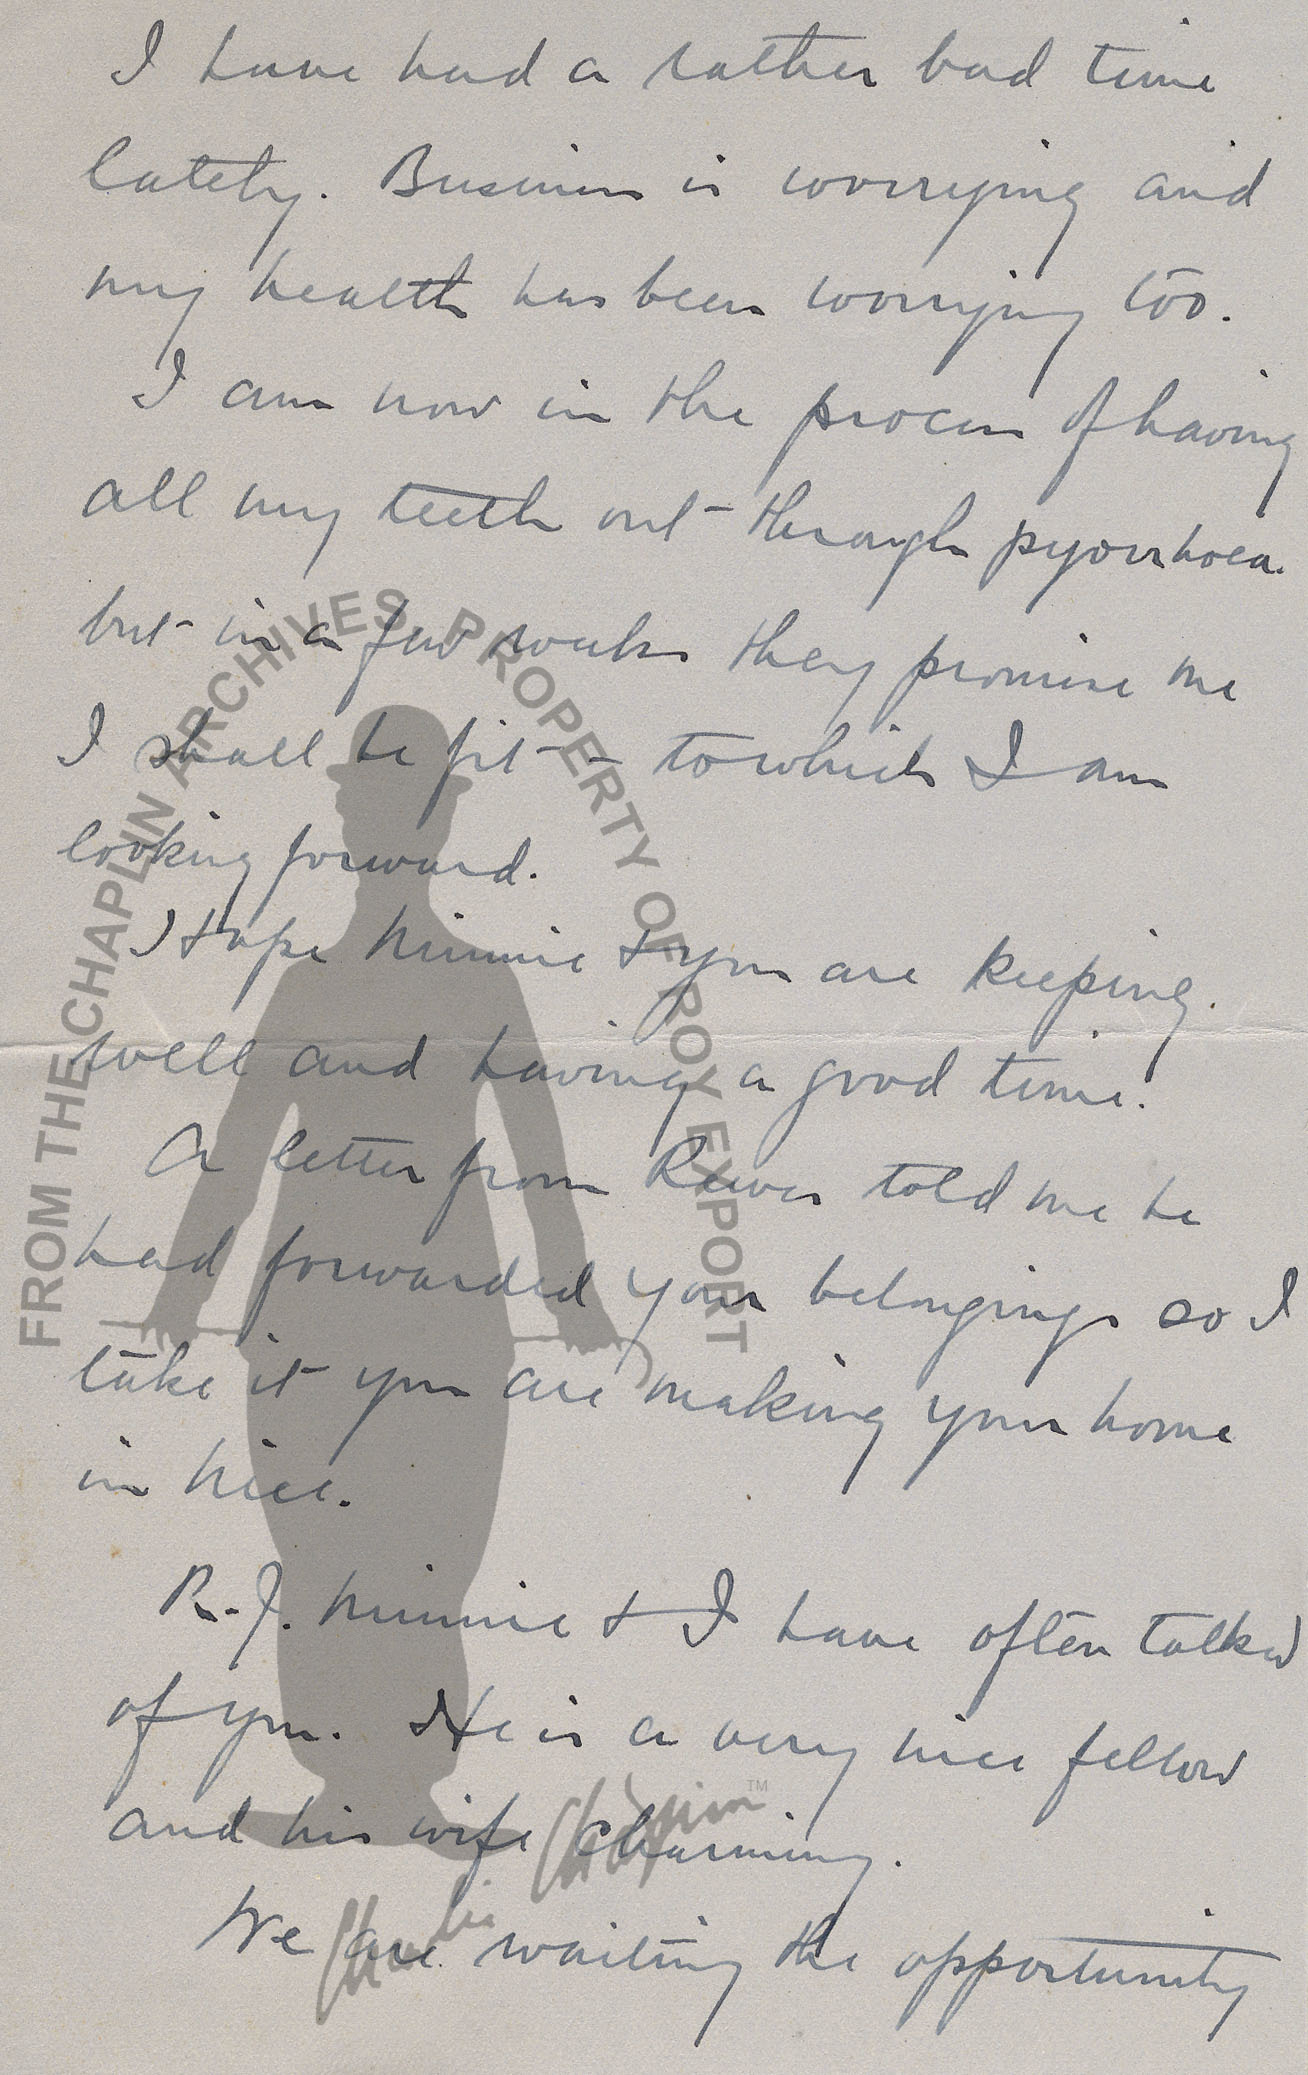 I have had a rather bad time
lately. Business is worrying and
my health has been worrying too.
I am now in the process of having
all my teeth out through pyorrhoea.
but in a few weeks they promise me
I shall be fit - to which I am
looking forward.
I Hope Minnie & you are keeping
well and having a good time.
A letter from Reeves told me he
had forwarded your belongings so I
take it you are making your home
in Nice.
R.J. Minnie & I have often talked
of you. He is a very nice fellow
and his wife charming.
We are waiting the opportunity
FROM THE CHAPLIN ARCHIVES, PROPERTY OF ROY EXPORT
Charlie Chaplin TM